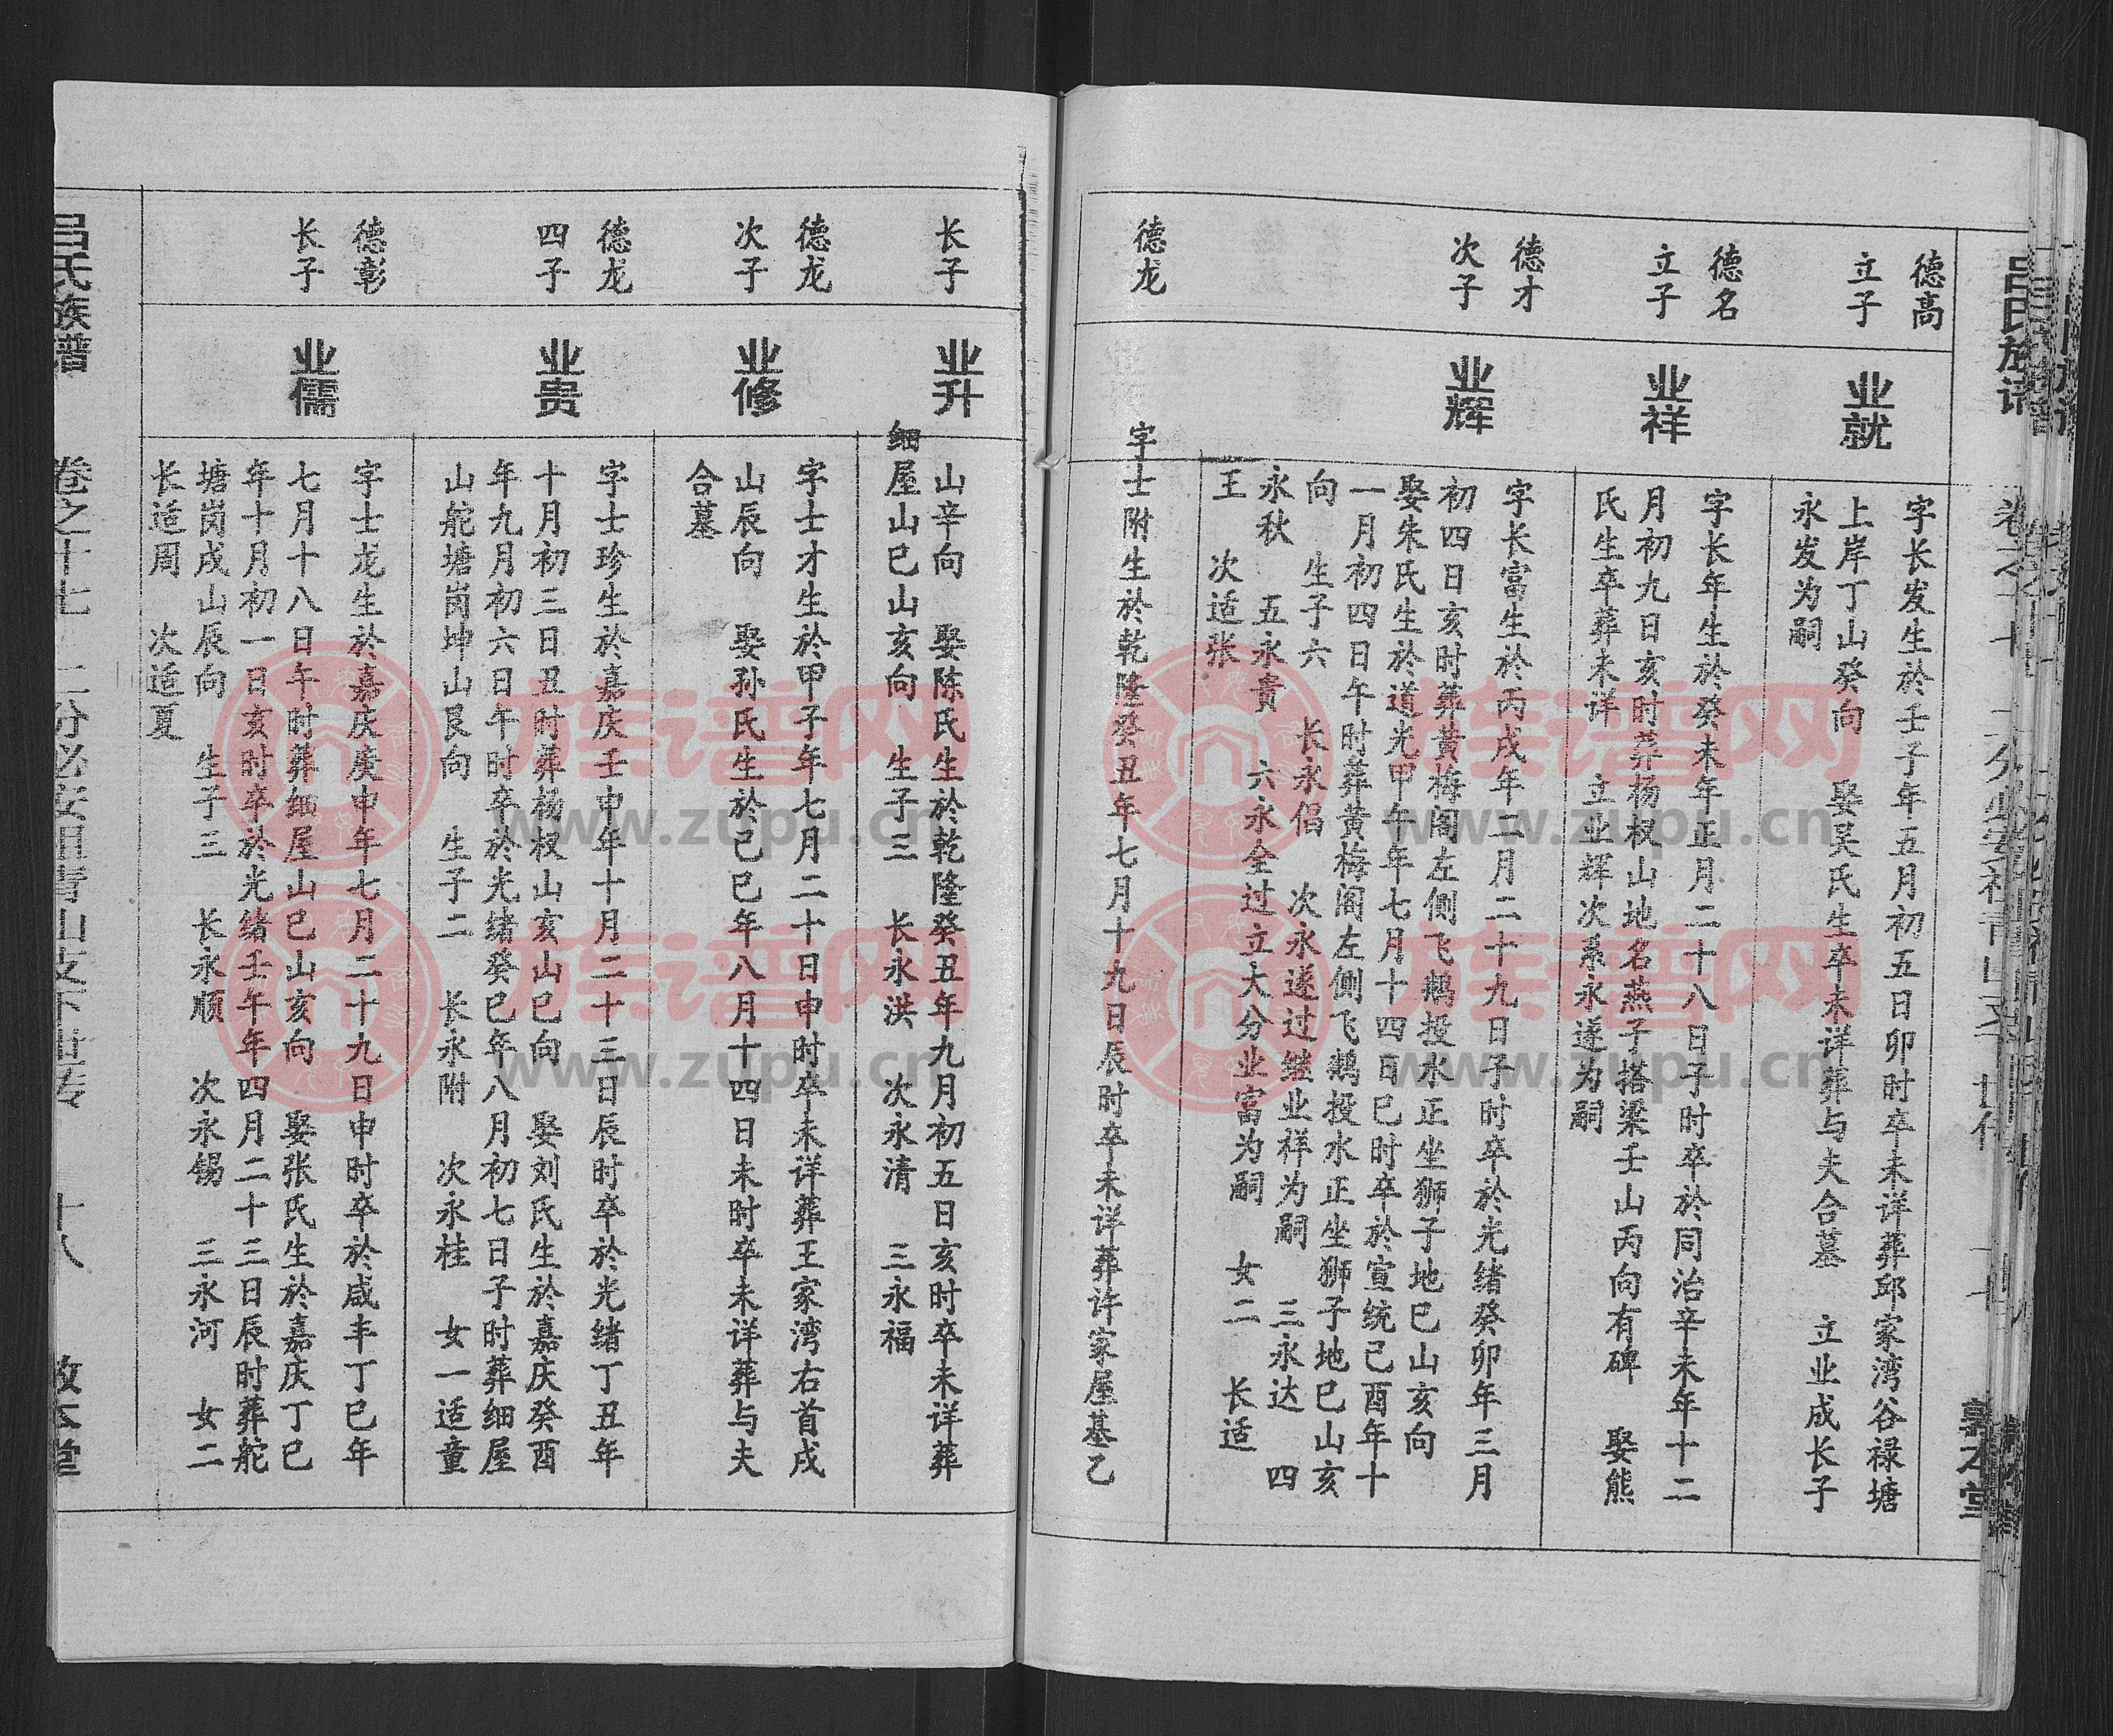 德高
立子
业就
字长发生於壬子年五月初五日卯时卒未详葬邱家湾谷禄塘
上岸丁山癸向 娶吴氏生卒未详葬与夫合墓 立业成长子
永发为嗣
德名
立子
业祥
字长年生於癸未年正月二十八日子时卒於同治辛未年十二
月初九日亥时葬杨权山地名燕子搭梁壬山丙向有碑 娶熊
氏生卒葬未详 立业辉次系永遂为嗣
德才
次子
业辉
字长富生於丙戌年二月二十九日子时卒於光绪癸卯年三月
初四日亥时葬黄梅阁左侧飞鹅投水正坐狮子地巳山亥向
娶朱氏生於道光甲午年七月十四日巳时卒於宣统己酉年十
一月初四日午时葬黄梅阁左侧飞鹅投水正坐狮子地巳山亥
向 生子六 长永侣 次永遂过继业祥为嗣 三永达 四
永秋 五永贵 六永全过立大分业富为嗣 女二 长适
王 次适张
德龙
字士附生於乾隆癸丑年七月十九日辰时卒未详葬许家屋基乙
长子
业升
山辛向 娶陈氏生於乾隆癸丑年九月初五日亥时卒未详葬
细屋山巳山亥向 生子三 长永洪 次永清 三永福
德龙
次子
业修
字士才生於甲子年七月二十日申时卒未详葬王家湾右首戌
山辰向 娶孙氏生於己巳年八月十四日未时卒未详葬与夫
合墓
德龙
四子
业贵
字士珍生於嘉庆壬申年十月二十三日辰时卒於光绪丁丑年
十月初三日丑时葬杨权山亥山巳向 娶刘氏生於嘉庆癸酉
年九月初六日午时卒於光绪癸巳年八月初七日子时葬细屋
山舵塘岗坤山艮向 生子二 长永附 次永桂 女一适童
德彰
长子
业儒
字士龙生於嘉庆庚申年七月二十九日申时卒於咸丰丁巳年
七月十八日午时葬细屋山巳山亥向 娶张氏生於嘉庆丁巳
年十月初一日亥时卒於光绪壬午年四月二十三日辰时葬舵
塘岗戌山辰向 生子三 长永顺 次永锡 三永河 女二
长适周 次适夏
吕氏族谱 卷之十七 二分必安祖青山支下世传 十八 敦本堂
族谱网
www.zupu.cn
族谱网
www.zupu.cn
族谱网
www.zupu.cn
族谱网
www.zupu.cn